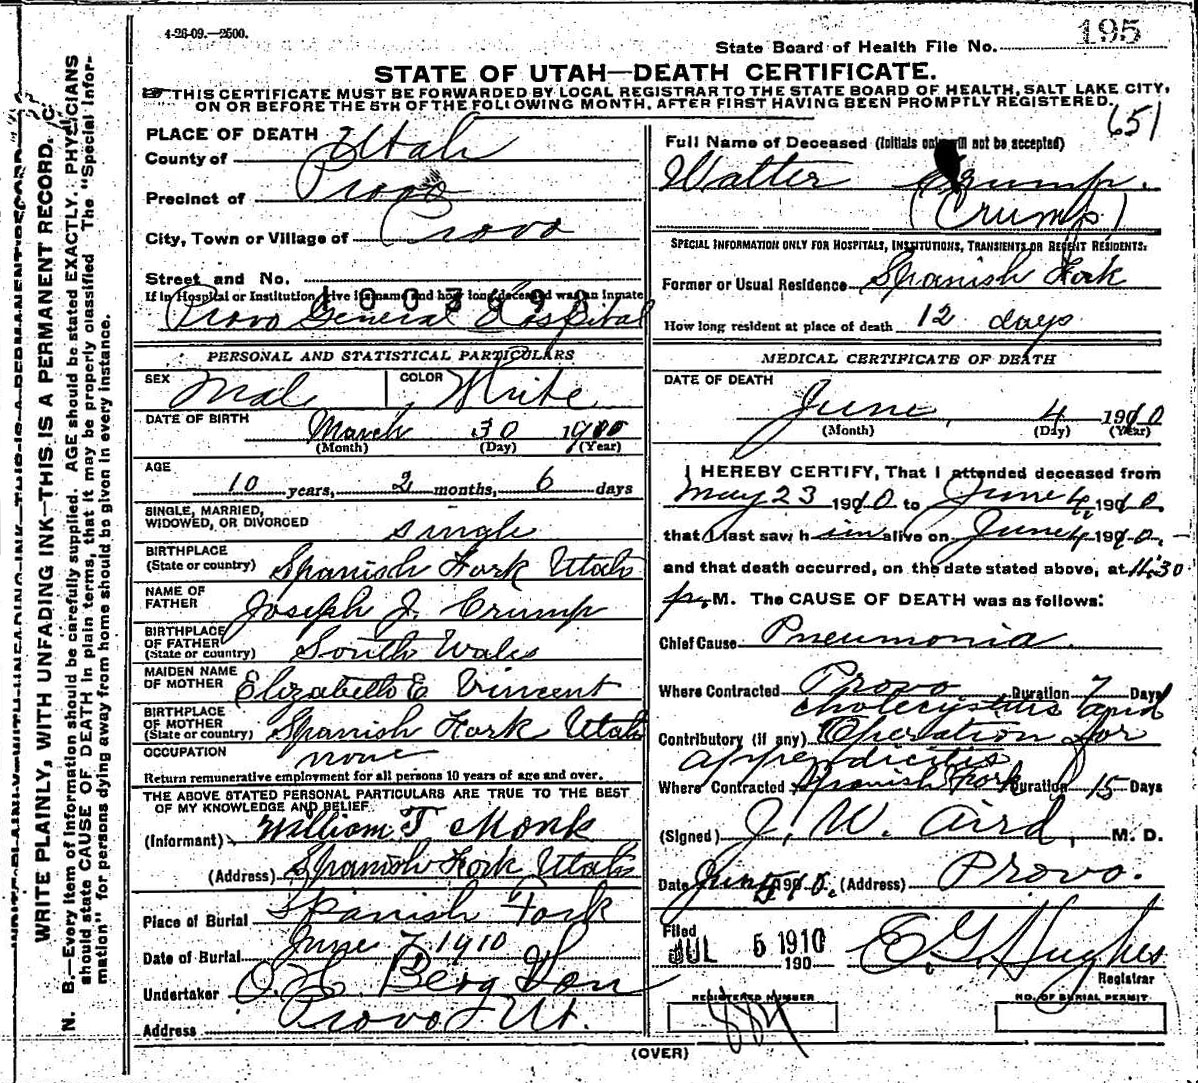 4-26-09.—2500.
State Board of Health File No. 195
STATE OF UTAH—DEATH CERTIFICATE.
THIS CERTIFICATE MUST BE FORWARDED BY LOCAL REGISTRAR TO THE STATE BOARD OF HEALTH, SALT LAKE CITY,
ON OR BEFORE THE 5TH OF THE FOLLOWING MONTH, AFTER FIRST HAVING BEEN PROMPTLY REGISTERED.
651
PLACE OF DEATH
County of Utah
Precinct of Provo
City, Town or Village of Provo
Street and No.
If in Hospital or Institution, give its name and how long deceased was an inmate
Provo General Hospital
PERSONAL AND STATISTICAL PARTICULARS
SEX Male COLOR White
DATE OF BIRTH March 30 1900
(Month) (Day) (Year)
AGE 10 years, 2 months, 6 days
SINGLE, MARRIED,
WIDOWED, OR DIVORCED single
BIRTHPLACE
(State or country) Spanish Fork Utah
NAME OF
FATHER Joseph J. Crump
BIRTHPLACE
OF FATHER
(State or country) South Wales
MAIDEN NAME
OF MOTHER Elizabeth E Vincent
BIRTHPLACE
OF MOTHER
(State or country) Spanish Fork Utah
OCCUPATION none
Return remunerative employment for all persons 10 years of age and over.
THE ABOVE STATED PERSONAL PARTICULARS ARE TRUE TO THE BEST
OF MY KNOWLEDGE AND BELIEF.
(Informant) William T Monk
(Address) Spanish Fork Utah
Place of Burial Spanish Fork
Date of Burial June 7 1910
Undertaker Berg Son
Address Provo Ut.
Full Name of Deceased (Initials only will not be accepted)
Walter Crump.
(Crump)
SPECIAL INFORMATION ONLY FOR HOSPITALS, INSTITUTIONS, TRANSIENTS OR RECENT RESIDENTS:
Former or Usual Residence Spanish Fork
How long resident at place of death 12 days
MEDICAL CERTIFICATE OF DEATH
DATE OF DEATH
June 4 1910
(Month) (Day) (Year)
I HEREBY CERTIFY, That I attended deceased from
May 23 1910 to June 4, 1910.
that I last saw him alive on June 4 1910.
and that death occurred, on the date stated above, at 11:30
p. M. The CAUSE OF DEATH was as follows:
Chief Cause Pneumonia
Where Contracted Provo Duration 7 Days
cholecystitis and
Contributory (if any) Operation for
appendicitis
Where Contracted Spanish Fork Duration 15 Days
(Signed) J. W. Aird, M. D.
Date June 5 1910. (Address) Provo.
Filed
JUL 5 1910
190
E G Hughes
Registrar
REGISTERED NUMBER
NO. OF BURIAL PERMIT
(OVER)
WRITE PLAINLY, WITH UNFADING INK—THIS IS A PERMANENT RECORD.
N. B.—Every item of information should be carefully supplied. AGE should be stated EXACTLY. PHYSICIANS
should state CAUSE OF DEATH in plain terms, that it may be properly classified. The "Special Infor-
mation" for persons dying away from home should be given in every instance.